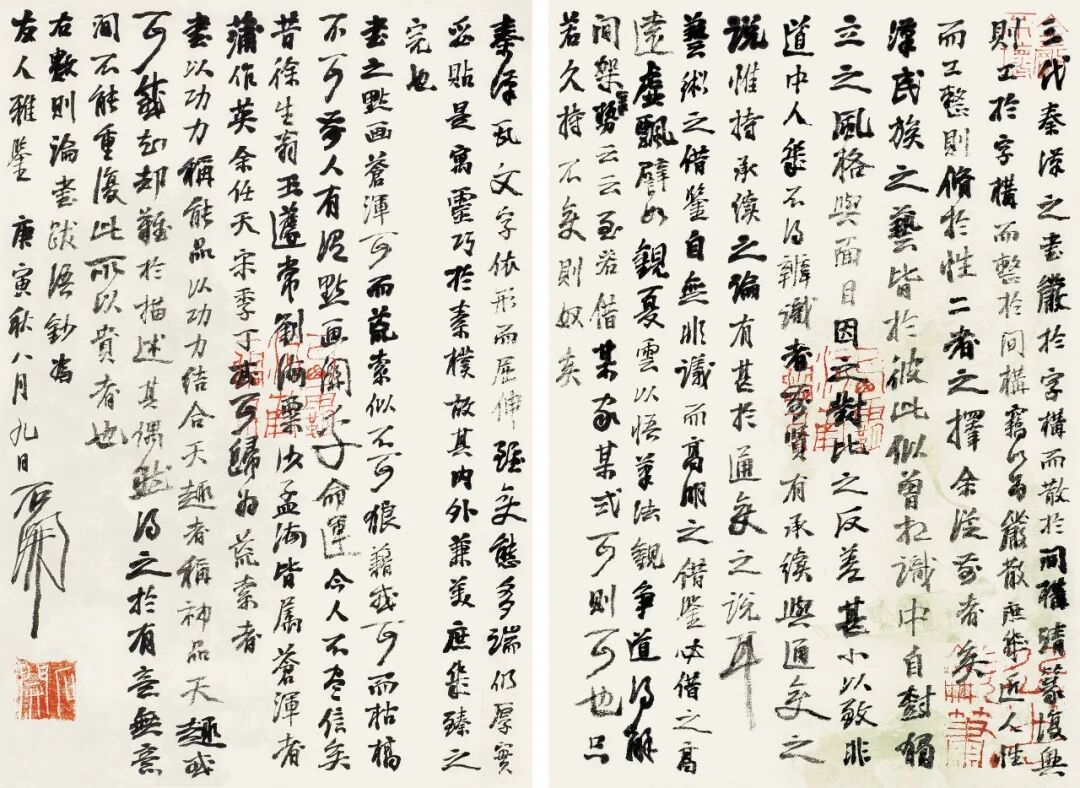 三代秦漢之書嚴於字構而散於間構清篆復興
則工於字構而整於間構竊以為嚴散庶幾近人性
而工整則脩於性二者之擇余從前者矣
漢民族之藝皆於彼此似曾相識中自樹獨
立之風格與面目因之對比之反差甚小以致非
道中人幾不得辨識者古賢有承續與通變之
說惟持承續之論有甚於通變之說耳
藝術之借鑒自無非議而高明之借鑒必借之高
遠虛飄譬如觀夏雲以悟筆法觀爭道得解
間架勢云云至若借某家某式可則可也只
若久持不變則奴矣
秦漢瓦文字依形而屈伸雖變態多端仍厚實
妥貼是寓靈巧於素樸故其內外兼美庶幾臻之
完也
書之點畫蒼渾可而荒索似不可狼藉或可而枯槁
不可前人有沼點画關乎命運今人不盡信矣
昔徐生翁王蘧常劉海粟沙孟海皆屬蒼渾者
蒲作英余任天宋季丁或可歸為荒索者
書以功力稱能品以功力結合天趣者稱神品天趣或
可感知却難於描述其偶然得之於有意無意
間不能重復此所以貴者也
右數則論書跋語鈔為
友人雅鑒 庚寅秋八月九日 石開